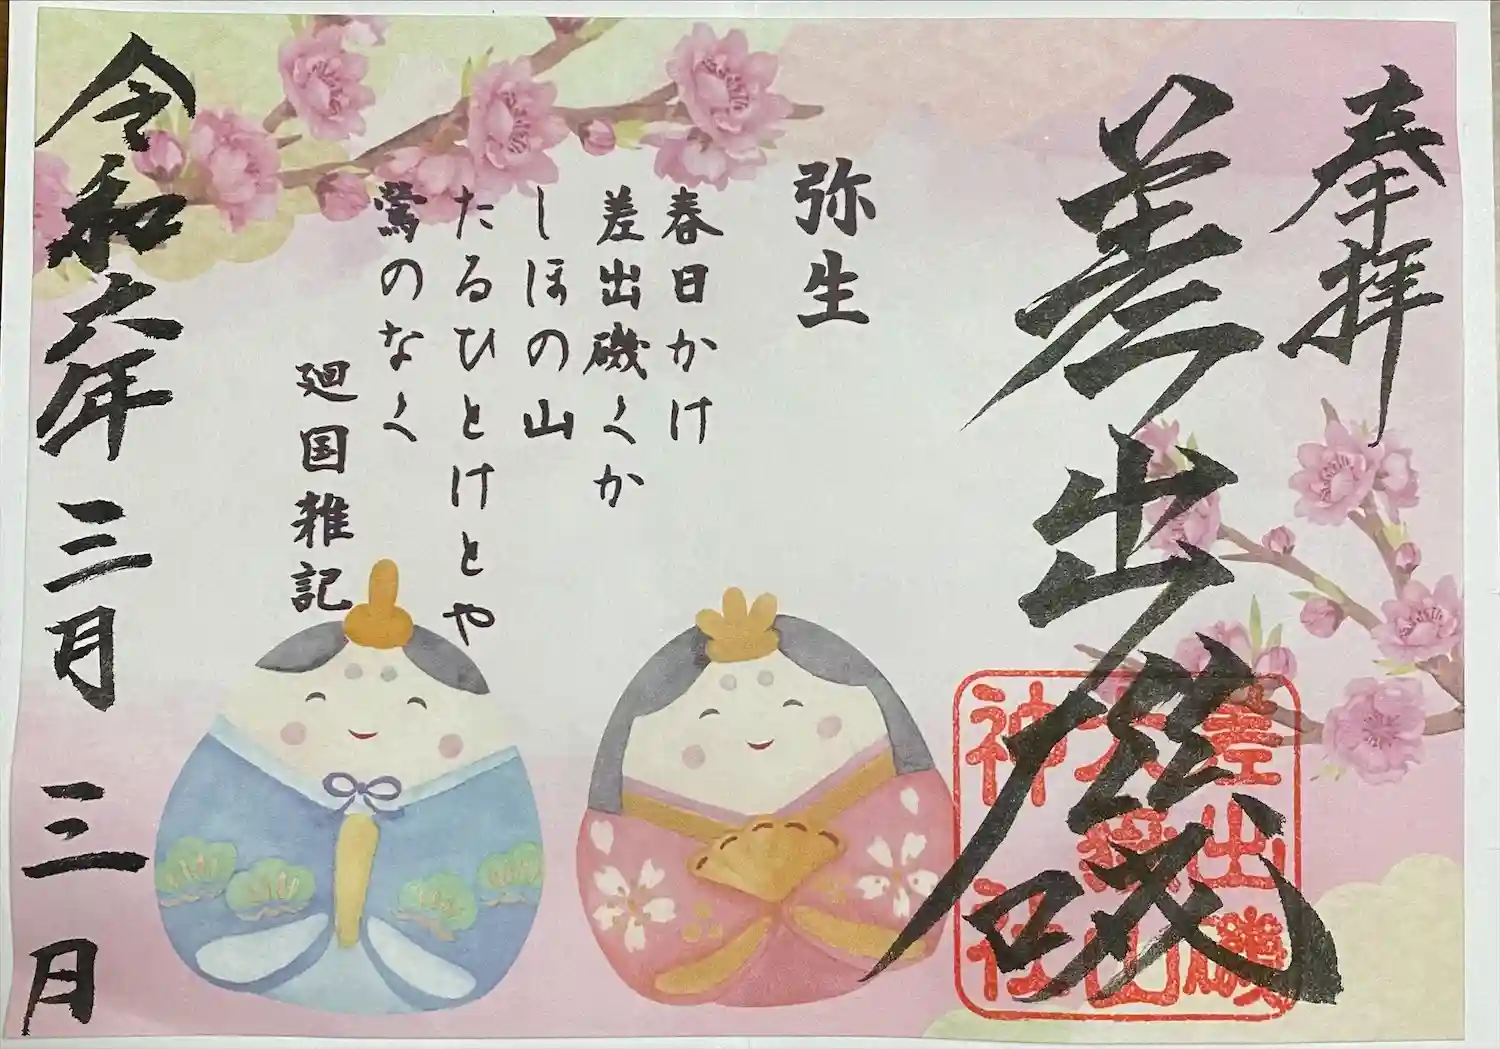 奉拝
差出磯
差出磯
大嶽山
神社
弥生
春日かけ
差出磯くか
しほの山
たるひとけとや
鶯のなく
廻国雑記
令和六年三月三日